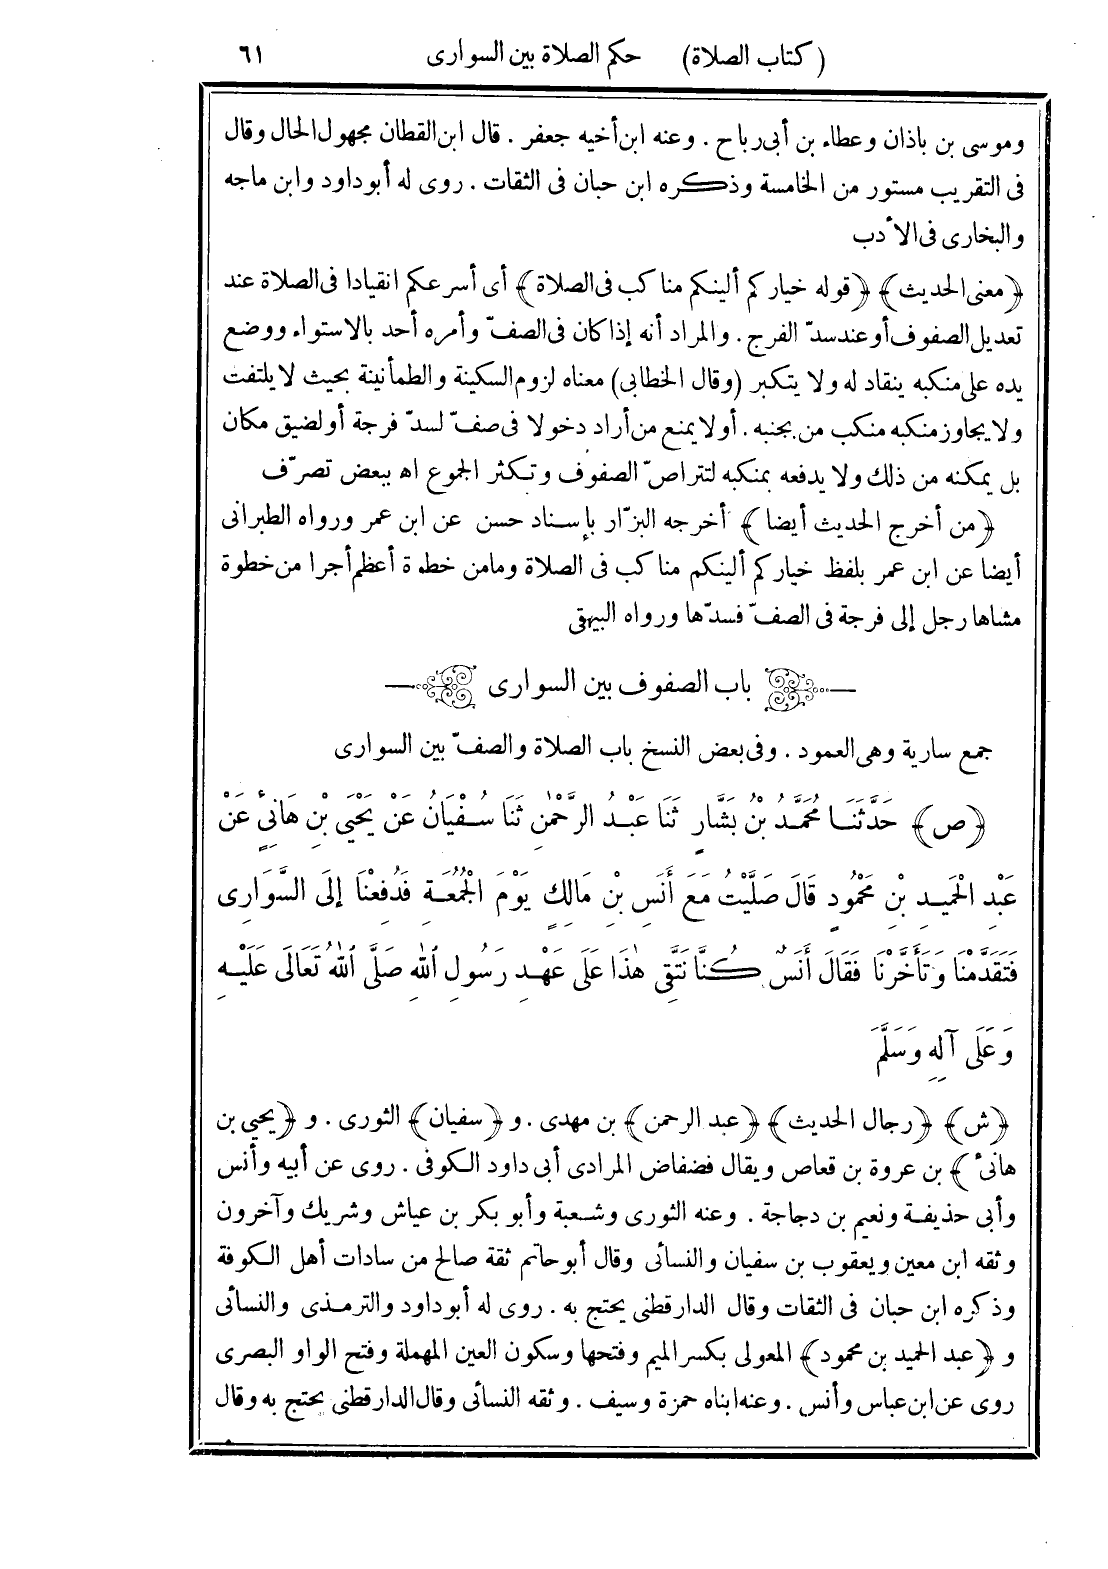 (كتاب الصلاة) حكم الصلاة بين السوارى ٦١
وموسى بن باذان وعطاء بن أبى رباح . وعنه ابن أخيه جعفر . قال ابن القطان مجهول الحال وقال
فى التقريب مستور من الخامسة وذكره ابن حبان فى الثقات . روى له أبو داود وابن ماجه
والبخارى فى الأدب
﴿معنى الحديث﴾ ﴿قوله خياركم ألينكم مناكب فى الصلاة﴾ أى أسرعكم انقيادا فى الصلاة عند
تعديل الصفوف أو عند سدّ الفرج . والمراد أنه إذا كان فى الصفّ وأمره أحد بالاستواء ووضع
يده على منكبه ينقاد له ولا يتكبر (وقال الخطابى) معناه لزوم السكينة والطمأنينة بحيث لا يلتفت
ولا يجاوز منكبه منكب من بجنبه . أو لا يمنع من أراد دخولا فى صفّ لسدّ فرجة أو لضيق مكان
بل يمكنه من ذلك ولا يدفعه بمنكبه لتتراصّ الصفوف وتكثر الجموع اه ببعض تصرّف
﴿من أخرج الحديث أيضا﴾ أخرجه البزّار بإسناد حسن عن ابن عمر ورواه الطبرانى
أيضا عن ابن عمر بلفظ خياركم ألينكم مناكب فى الصلاة ومامن خطوة أعظم أجرا من خطوة
مشاها رجل إلى فرجة فى الصفّ فسدّها ورواه البيهقى
باب الصفوف بين السوارى
جمع سارية وهى العمود . وفى بعض النسخ باب الصلاة والصفّ بين السوارى
﴿ص﴾ حَدَّثَنَا مُحَمَّدُ بْنُ بَشَّارٍ ثَنَا عَبْدُ الرَّحْمٰنِ ثَنَا سُفْيَانُ عَنْ يَحْيَى بْنِ هَانِئٍ عَنْ
عَبْدِ الْحَمِيدِ بْنِ مَحْمُودٍ قَالَ صَلَّيْتُ مَعَ أَنَسِ بْنِ مَالِكٍ يَوْمَ الْجُمُعَةِ فَدُفِعْنَا إِلَى السَّوَارِى
فَتَقَدَّمْنَا وَتَأَخَّرْنَا فَقَالَ أَنَسٌ كُنَّا نَتَّقِى هٰذَا عَلَى عَهْدِ رَسُولِ اللهِ صَلَّى اللهُ تَعَالَى عَلَيْهِ
وَعَلَى آلِهِ وَسَلَّمَ
﴿ش﴾ ﴿رجال الحديث﴾ ﴿عبد الرحمن﴾ بن مهدى . و ﴿سفيان﴾ الثورى . و ﴿يحيى بن
هانئ﴾ بن عروة بن قعاص ويقال فضفاض المرادى أبى داود الكوفى . روى عن أبيه وأنس
وأبى حذيفة ونعيم بن دجاجة . وعنه الثورى وشعبة وأبو بكر بن عياش وشريك وآخرون
وثقه ابن معين ويعقوب بن سفيان والنسائى وقال أبو حاتم ثقة صالح من سادات أهل الكوفة
وذكره ابن حبان فى الثقات وقال الدارقطنى يحتج به . روى له أبو داود والترمذى والنسائى
و ﴿عبد الحميد بن محمود﴾ المعولى بكسر الميم وفتحها وسكون العين المهملة وفتح الواو البصرى
روى عن ابن عباس وأنس . وعنه ابناه حمزة وسيف . وثقه النسائى وقال الدارقطنى يحتج به وقال